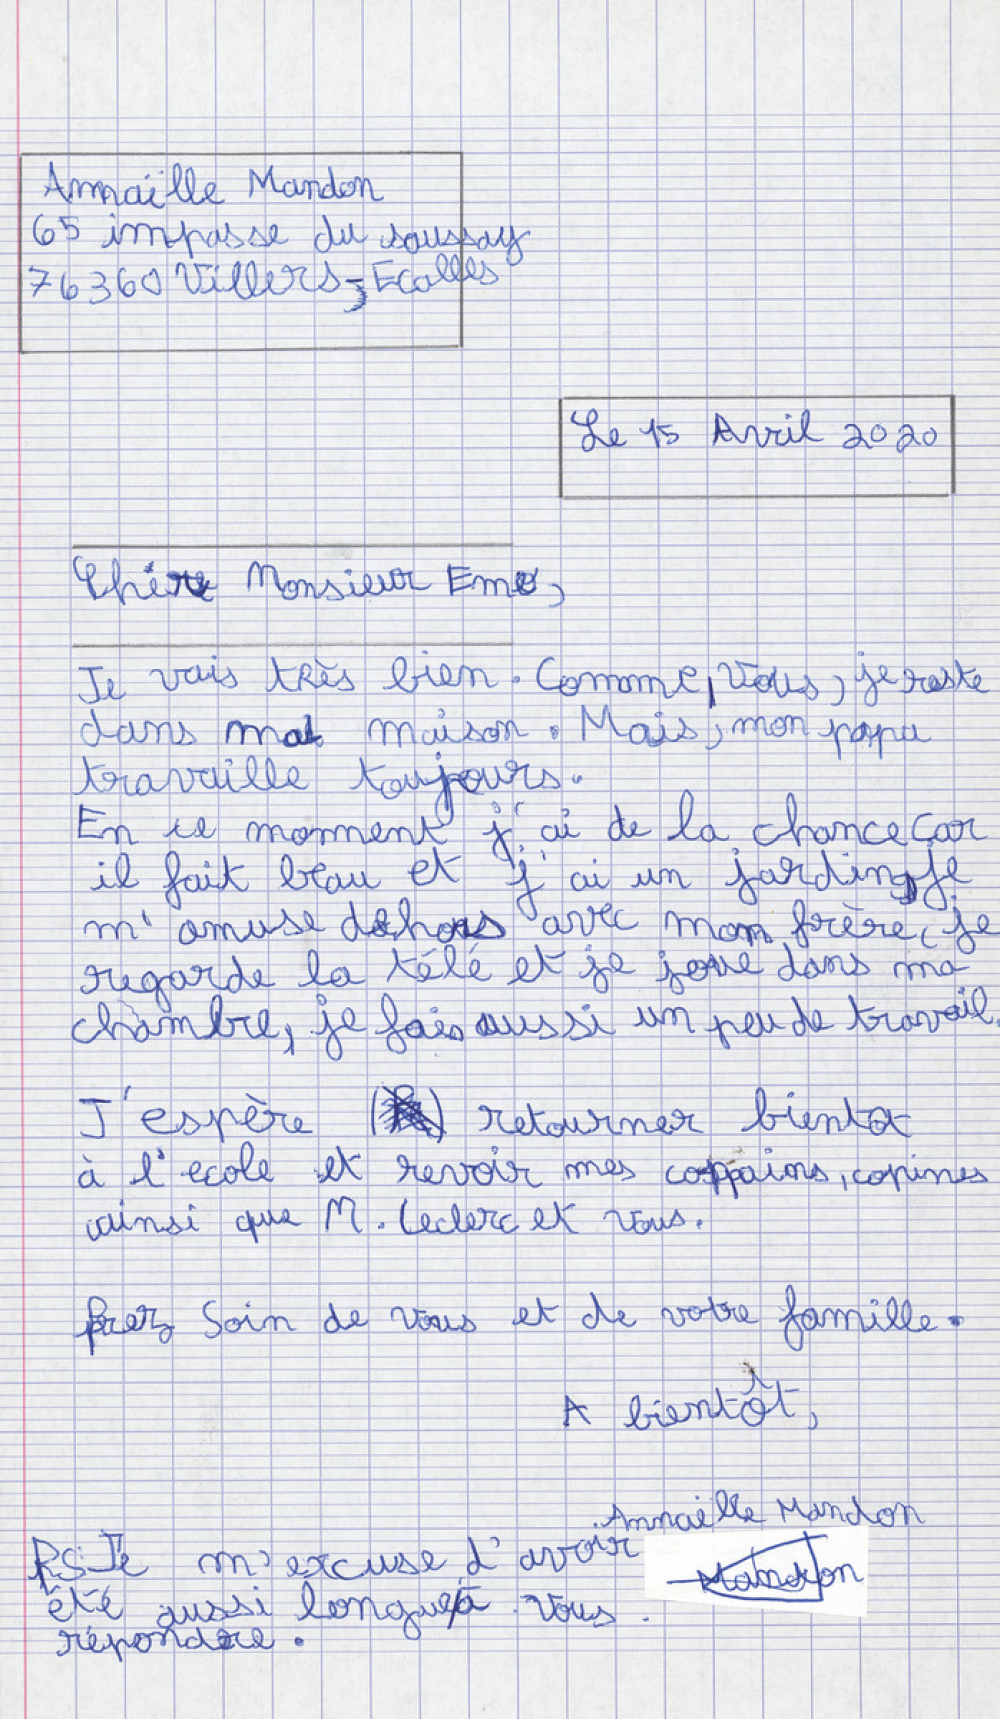 Annaëlle Mandon
65 impasse du saussay
76360 Villers-Ecalles
Le 15 Avril 2020
Chère Monsieur Eme,
Je vais très bien. Comme, vous, je reste
dans ma maison. Mais, mon papa
travaille toujours.
En ce moment j'ai de la chance car
il fait beau et j'ai un jardin, je
m'amuse dehors avec mon frère, je
regarde la télé et je joue dans ma
chambre, je fais aussi un peu de travail.
J'espère retourner bientot
à l'ecole et revoir mes copains, copines
ainsi que M. Leclerc et vous.
Soin de vous et de votre famille.
A bientôt,
Annaëlle Mandon
Mandon
PS: Je m'excuse d'avoir
été aussi longue à vous
répondre.